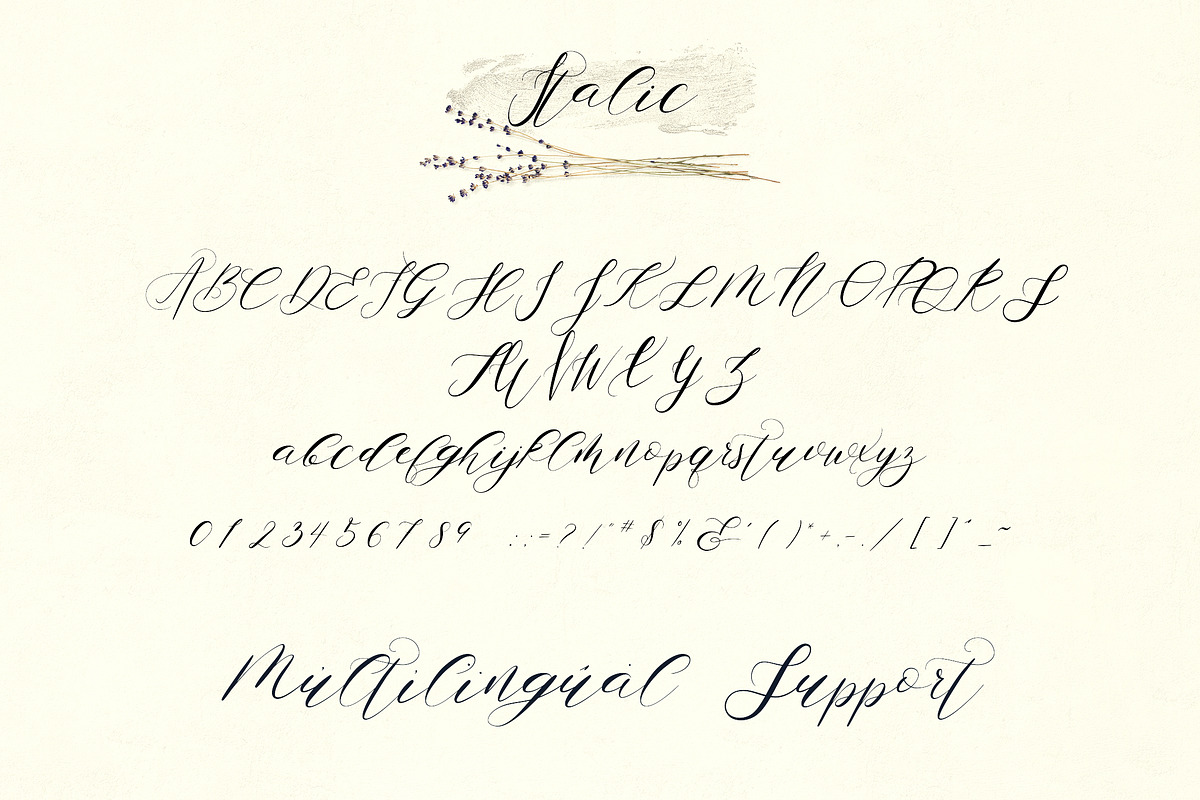 Italic
ABCDEFGHIJKLMNOPQRS
TUVWXYZ
abcdefghijklmnopqrstuvwxyz
0123456789 :;=?!"#$%&'()*+,-./[]^_~
Multilingual Support